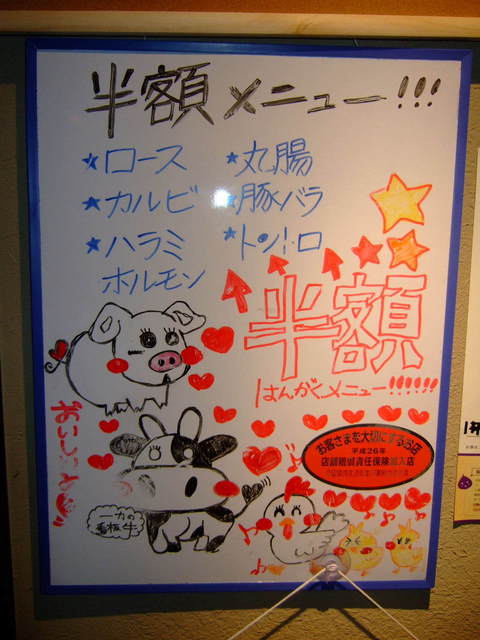 半額メニュー!!!
★ロース
★カルビ
★ハラミ
ホルモン
★丸腸
★豚バラ
★トントロ
半額
はんがくメニュー!!!!!!
おいしいよ
お客さまを大切にするお店
平成26年
店舗賠償責任保険加入店
一力の
看板牛